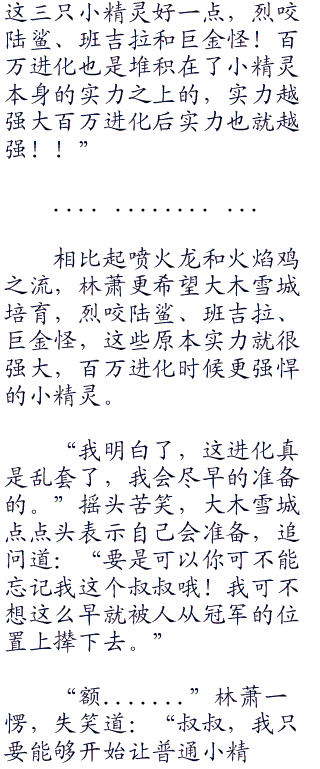 这三只小精灵好一点，烈咬
陆鲨、班吉拉和巨金怪！百
万进化也是堆积在了小精灵
本身的实力之上的，实力越
强大百万进化后实力也就越
强！！”
．．．． ．．．．．．．． ．．．
相比起喷火龙和火焰鸡
之流，林萧更希望大木雪城
培育，烈咬陆鲨、班吉拉、
巨金怪，这些原本实力就很
强大，百万进化时候更强悍
的小精灵。
“我明白了，这进化真
是乱套了，我会尽早的准备
的。”摇头苦笑，大木雪城
点点头表示自己会准备，追
问道：“要是可以你可不能
忘记我这个叔叔哦！我可不
想这么早就被人从冠军的位
置上撵下去。”
“额．．．．．．．”林萧一
愣，失笑道：“叔叔，我只
要能够开始让普通小精